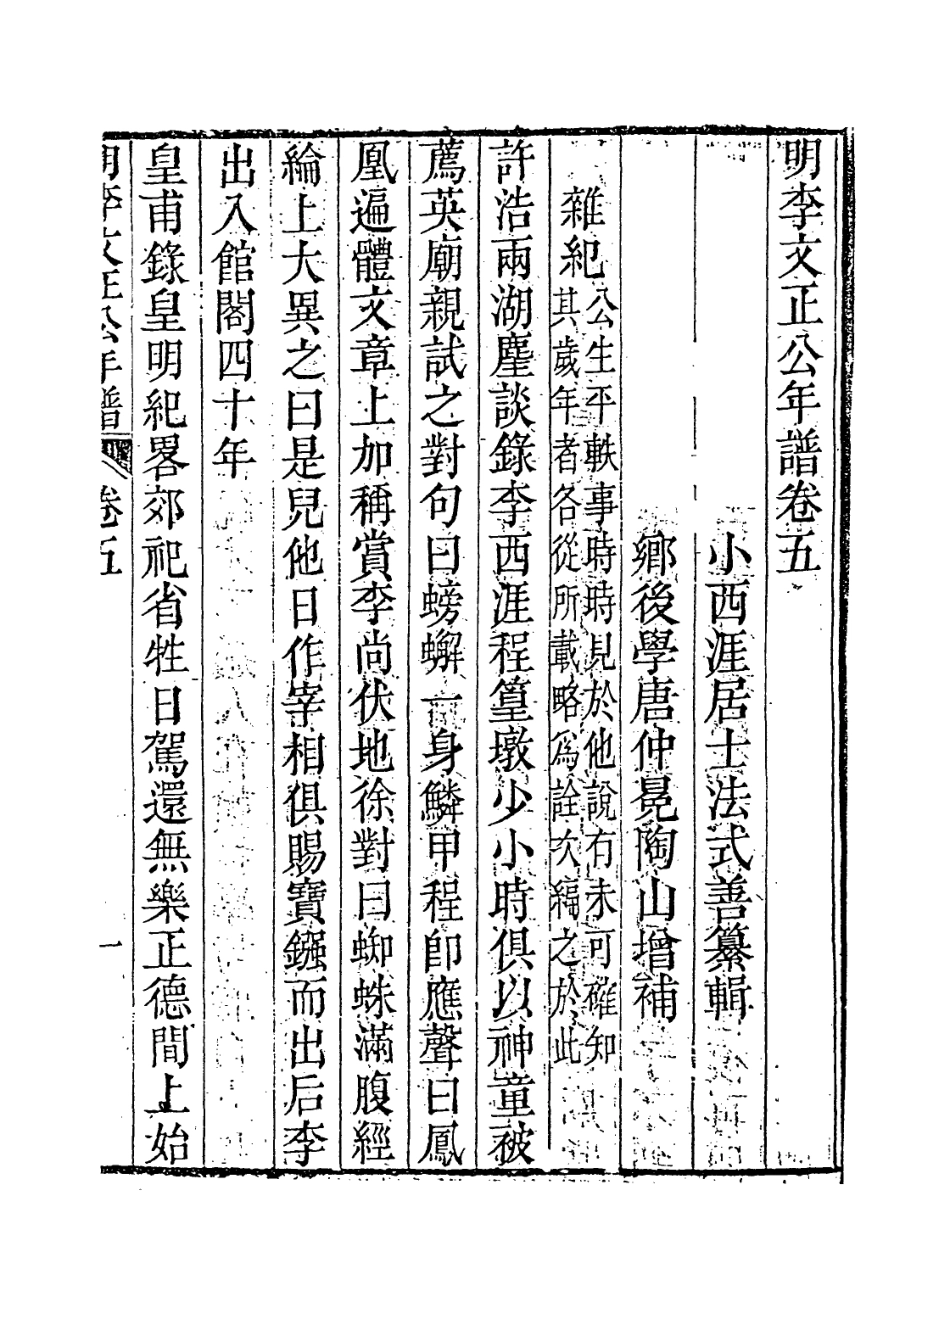 明李文正公年譜卷五
小西涯居士法式善纂輯
鄉後學唐仲冕陶山增補
雜紀
公生平軼事時時見於他說有未可確知
其歲年者各從所載略爲詮次編之於此
許浩兩湖塵談錄李西涯程篁墩少小時俱以神童被
薦英廟親試之對句曰螃蠏一身鱗甲程卽應聲曰鳳
凰遍體文章上加稱賞李尚伏地徐對曰蜘蛛滿腹經
綸上大異之曰是兒他日作宰相俱賜寶鏹而出后李
出入館閣四十年
皇甫錄皇明紀畧郊祀省牲日駕還無樂正德間上始
明李文正公年譜 卷五 一